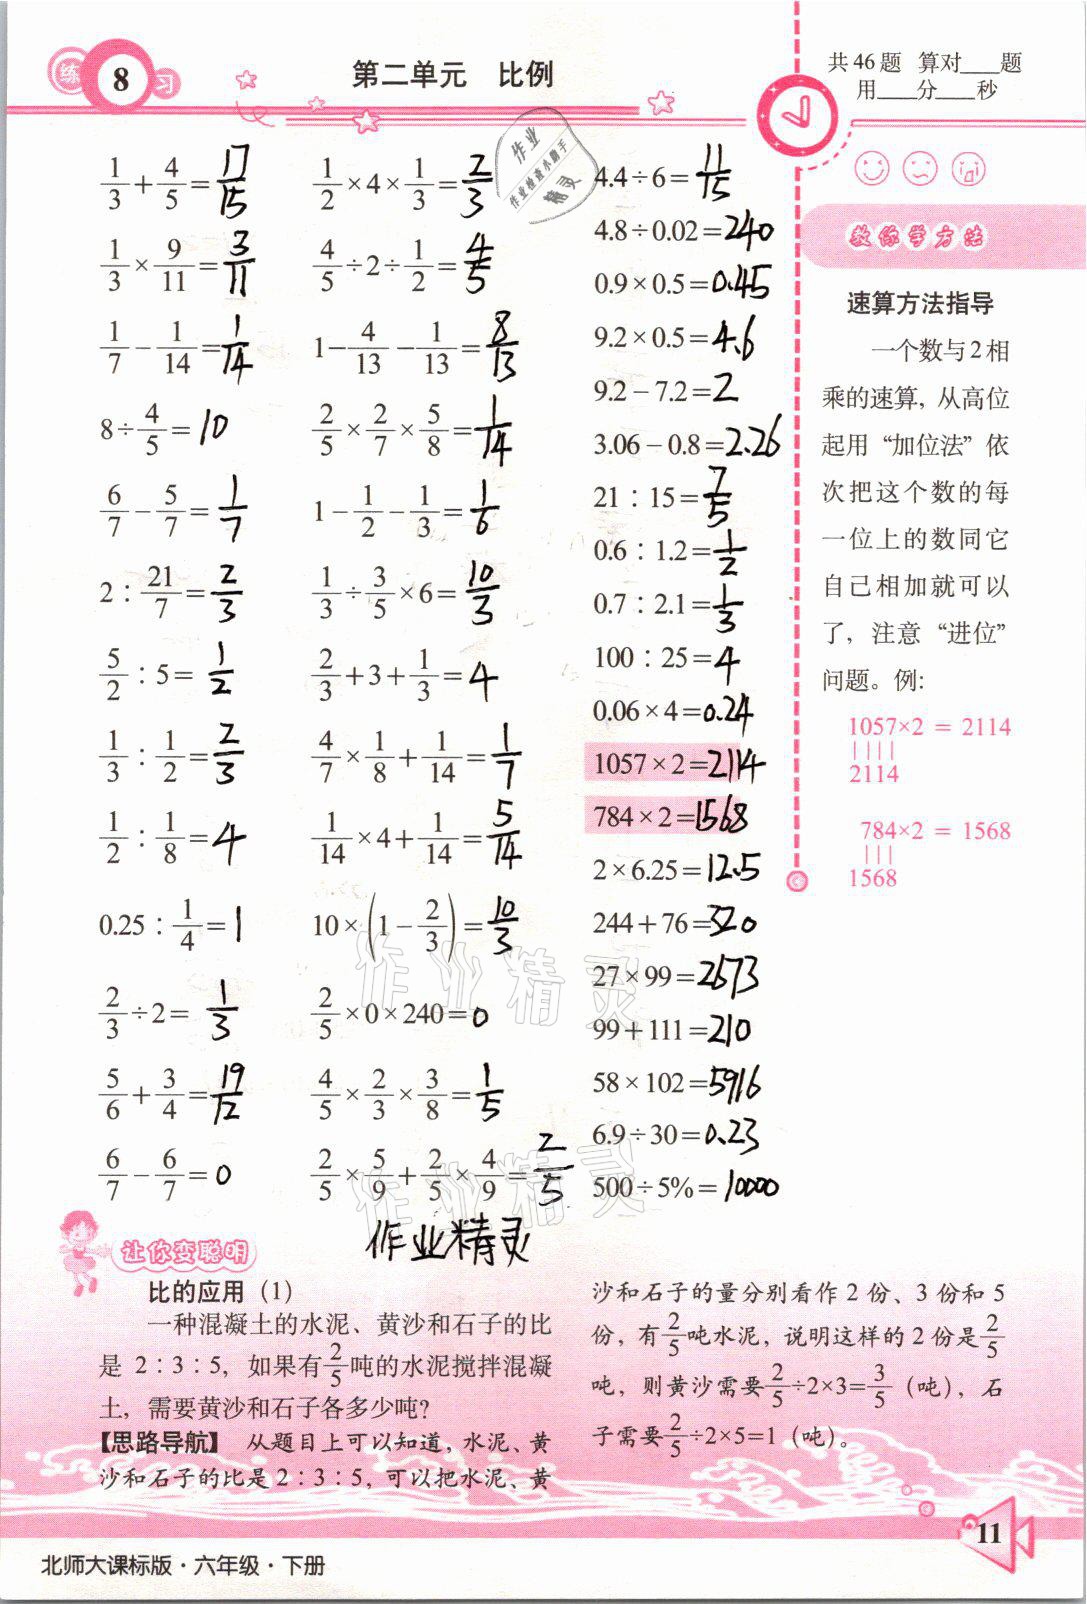 练 8 习
第二单元 比例
共46题 算对___题
用___分___秒
1/3+4/5=17/15
1/3×9/11=3/11
1/7-1/14=1/14
8÷4/5=10
6/7-5/7=1/7
2:21/7=2/3
5/2:5=1/2
1/3:1/2=2/3
1/2:1/8=4
0.25:1/4=1
2/3÷2=1/3
5/6+3/4=19/12
6/7-6/7=0
1/2×4×1/3=2/3
4/5÷2÷1/2=4/5
1-4/13-1/13=8/13
2/5×2/7×5/8=1/14
1-1/2-1/3=1/6
1/3÷3/5×6=10/3
2/3+3+1/3=4
4/7×1/8+1/14=1/7
1/14×4+1/14=5/14
10×(1-2/3)=10/3
2/5×0×240=0
4/5×2/3×3/8=1/5
2/5×5/9+2/5×4/9=2/5
作业精灵
4.4÷6=11/15
4.8÷0.02=240
0.9×0.5=0.45
9.2×0.5=4.6
9.2-7.2=2
3.06-0.8=2.26
21:15=7/5
0.6:1.2=1/2
0.7:2.1=1/3
100:25=4
0.06×4=0.24
1057×2=2114
784×2=1568
2×6.25=12.5
244+76=320
27×99=2673
99+111=210
58×102=5916
6.9÷30=0.23
500÷5%=10000
教你学方法
速算方法指导
一个数与2相
乘的速算，从高位
起用“加位法”依
次把这个数的每
一位上的数同它
自己相加就可以
了，注意“进位”
问题。例：
1057×2 = 2114
||||
2114
784×2 = 1568
|||
1568
作业
作业检查小助手
精灵
作业精灵
作业精灵
让你变聪明
比的应用（1）
一种混凝土的水泥、黄沙和石子的比
是 2:3:5，如果有2/5吨的水泥搅拌混凝
土，需要黄沙和石子各多少吨？
【思路导航】 从题目上可以知道，水泥、黄
沙和石子的比是2:3:5，可以把水泥、黄
沙和石子的量分别看作2份、3份和5
份，有2/5吨水泥，说明这样的2份是2/5
吨，则黄沙需要2/5÷2×3=3/5（吨），石
子需要2/5÷2×5=1（吨）。
北师大课标版·六年级·下册
11